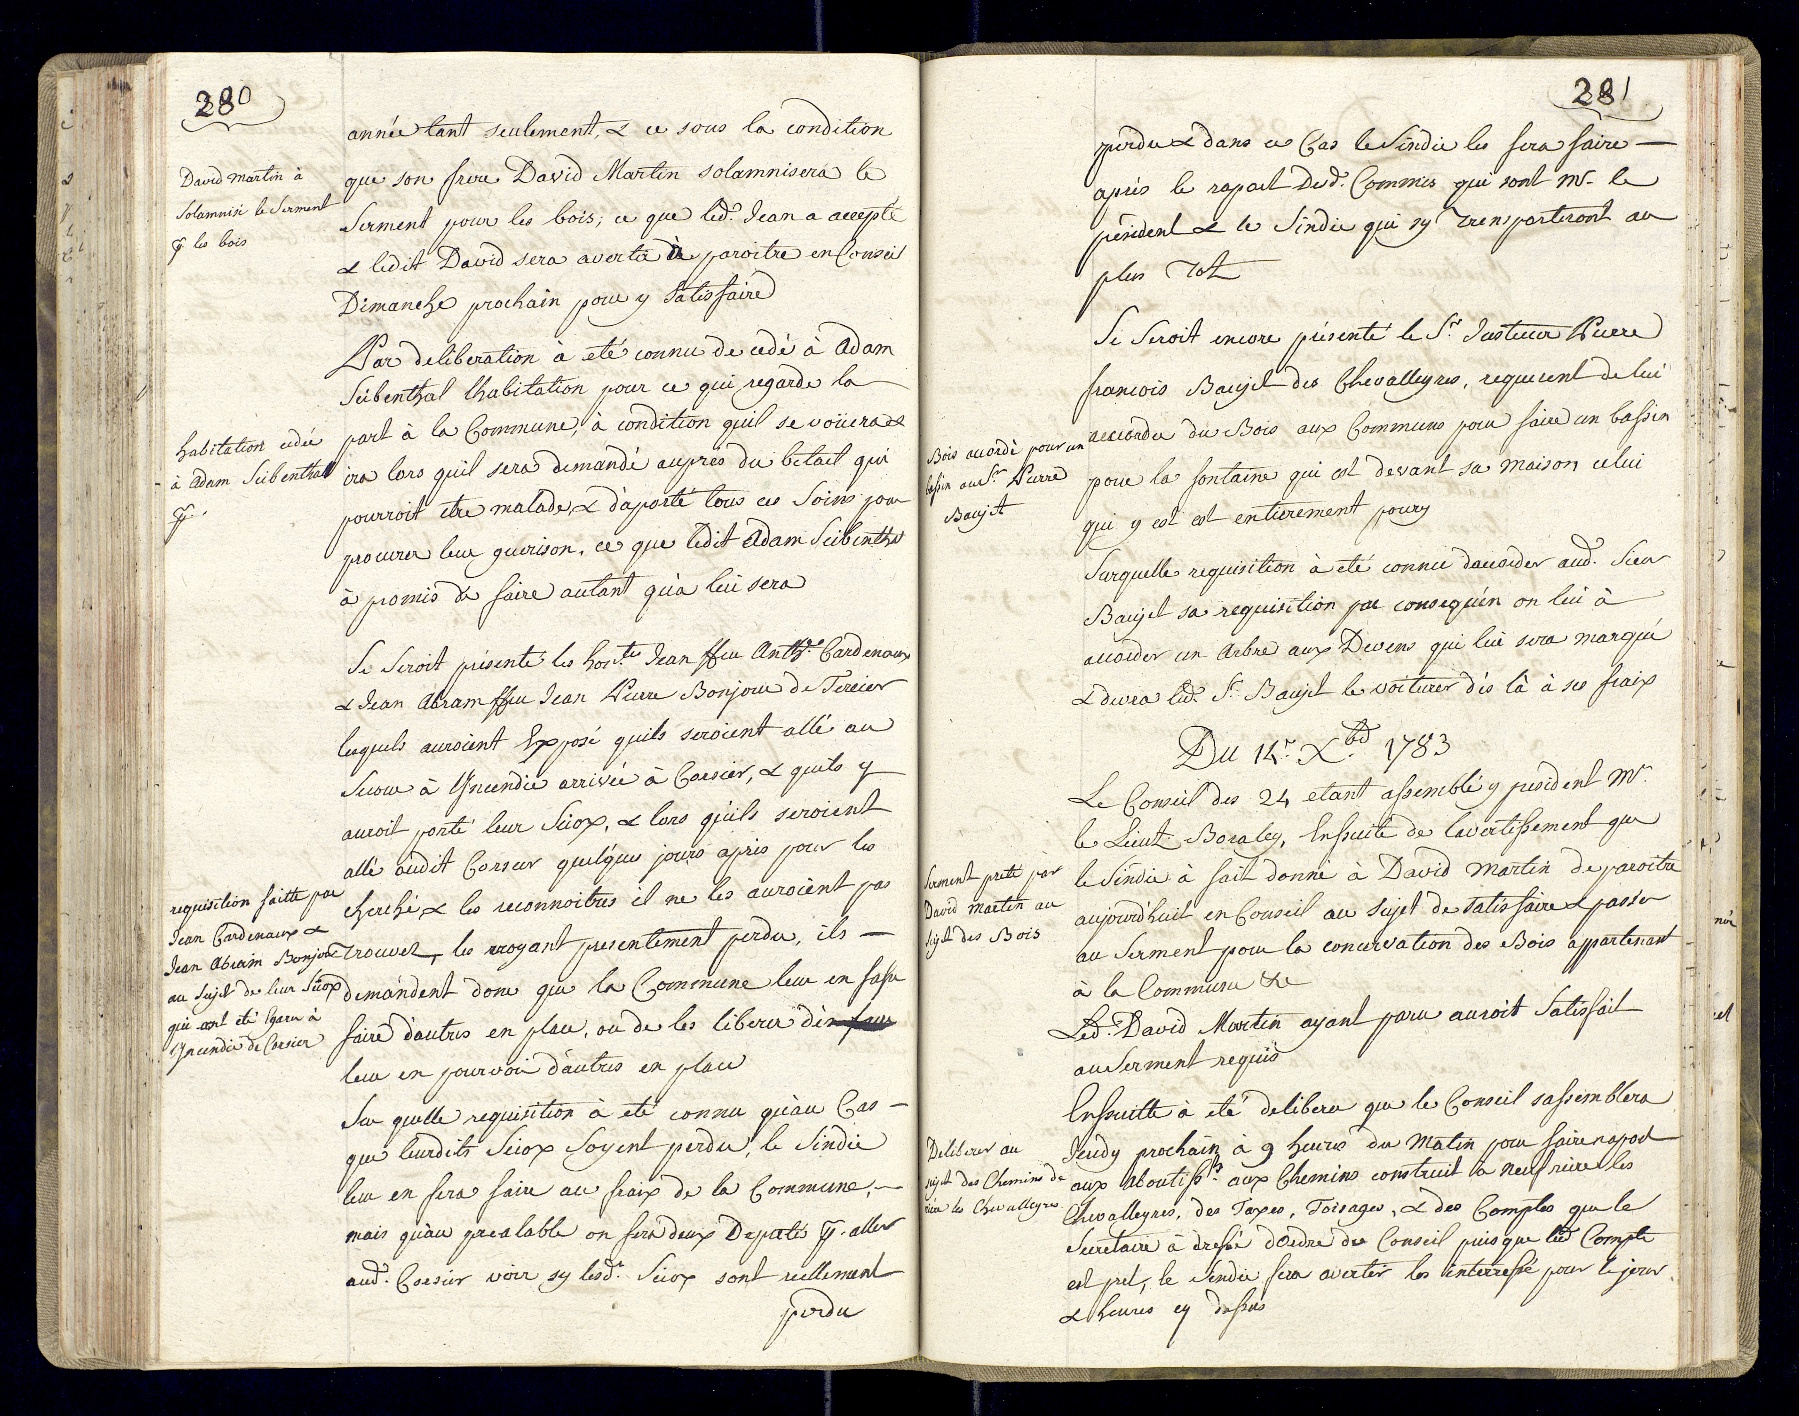 280
année tant seulement, & ce sous la condition
David martin à
que son frere David Martin solamnisera le
Solamnisé le Serment
Serment pour les bois; ce que led.t Jean a accepté
p.r les bois
& ledit David sera averti de paroitre en Conseil
Dimanche prochain pour y Satisfaire
Par deliberation à eté connu de cedé à Adam
Seibenthal lhabitation pour ce qui regarde la
habitation cedée
part à la Commune, à condition quil se voüera &
à Adam Seibenthal
ira lors quil sera demandé auprés du betail qui
pourroit etre malade, & d'aporté tous ces Soins pour
procurer leur guerison, ce que ledit Adam Seibenthal
à promis de faire autant qu'a lui sera
Se Seroit présenté les hon.tes Jean ffeu Anth.e Cardenaux
& Jean Abram ffeu Jean Pierre Bonjour de Tercier
lesquels auroient Exposé quils seroient allé au
Secour à lIncendie arrivée à Corsier, & quils y
auroit porté leur Seiox, & lors quils seroient
allé audit Corsier quelques jours aprés pour les
requisition faitte par
cherché & les reconnoitres il ne les auroient pas
Jean Cardenaux &
trouvez, les croyant presentement perdu, ils —
Jean Abram Bonjour
au Sujet de leur Seiox
demandent donc que la Commune leur en fasse
qui ont été Egaré à
faire d'autres en place, ou de les liberer d'en faire
lIncendie de Corsier
leur en pourvoir d'autres en place
Sur quelle requisition à eté connu qu'au Cas —
que leurdits Seiox Soyent perdu, le Sindic
leur en fera faire au fraix de la Commune, —
mais qu'au prealable on fera deux Deputé p.r aller
aud.t Corsier voir sy lesd.ts Seiox sont réellement
perdu
281
perdu & dans ce Cas le Sindic les fera faire —
aprés le raport Desd.ts Commis qui sont Mr. le
president & le Sindic qui sy trensporteront au
plus Tot
Se Seroit encore présenté le S.r Justicier Pierre
francois Baujet des Chevalleyres, requerent de lui
Bois accordé pour un
accorder du Bois aux Communs pour faire un bassin
bassin au S.r Pierre
pour la fontaine qui est devant sa Maison, celui
Baujet
qui y est est entierement poury
Surquelle requisition à eté connu daccorder aud.t Sieur
Baujet sa requisition par consequén on lui à
accorder un Arbre aux Devens qui lui sera marqué
& devra led.t S.r Baujet le voiturer dés là à ses fraix
Du 14.e X.bre 1783
Le Conseil des 24 etant assemblé y president Mr.
le Lieut. Boraley, Ensuite de lavertissement que
Serment preté par
le Sindic à fait donné à David Martin de paroitre
David Martin au
aujourd'huit en Conseil au Sujet de satisfaire & passer
sujet des Bois
au Serment pour la concervation des Bois appartenant
à la Commune &c
Led.t David Martin ayant paru auroit Satisfait
au Serment requis
Ensuitte à eté deliberé que le Conseil sassemblera
Deliberer au
Jeudy prochain à 9 heures du Matin pour faire raport
sujet des Chemins de
aux aboutiss.ts aux Chemins construit à neuf riere les
riere les Chevalleyres
Chevalleyres, des Taxes, Toisages, & des Comptes que le
Secretaire à dressé d'Ordre du Conseil puisque led.t Compte
est pret, le Sindic fera avertir les interressé pour le jour
& heures cy dessus